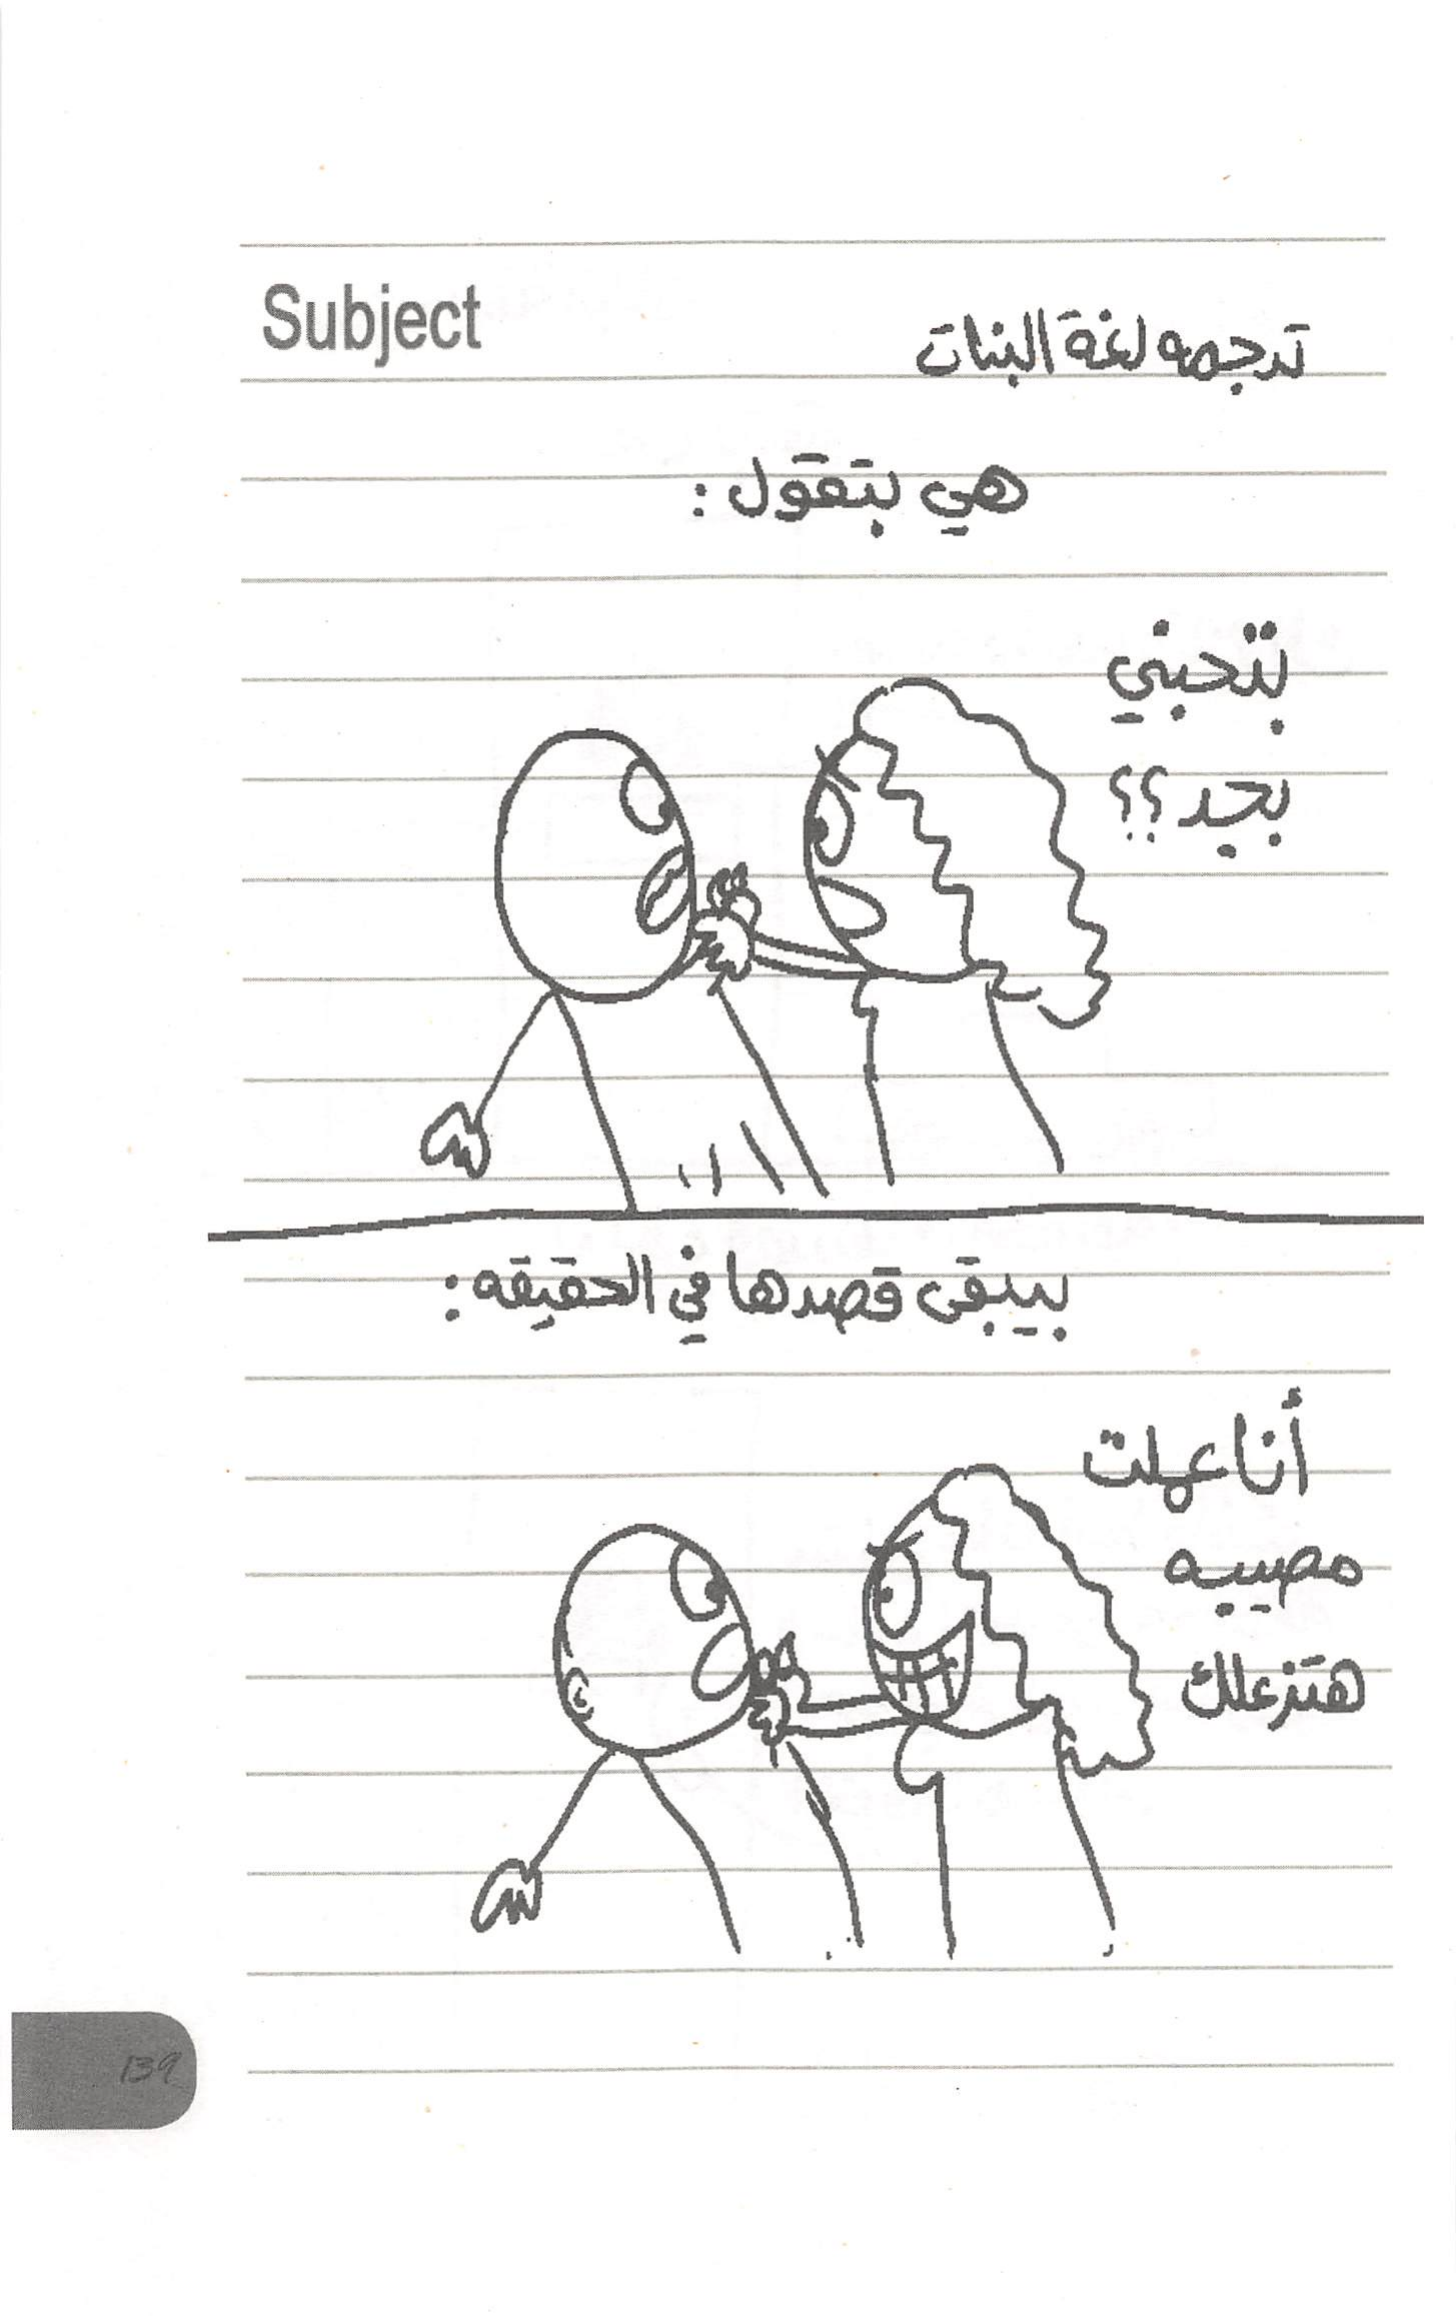 Subject
ترجمه لغة البنات
هي بتقول:
بتحبني
بجد؟؟
بيبقى قصدها في الحقيقه:
أنا عملت
مصيبه
هتزعلك
139